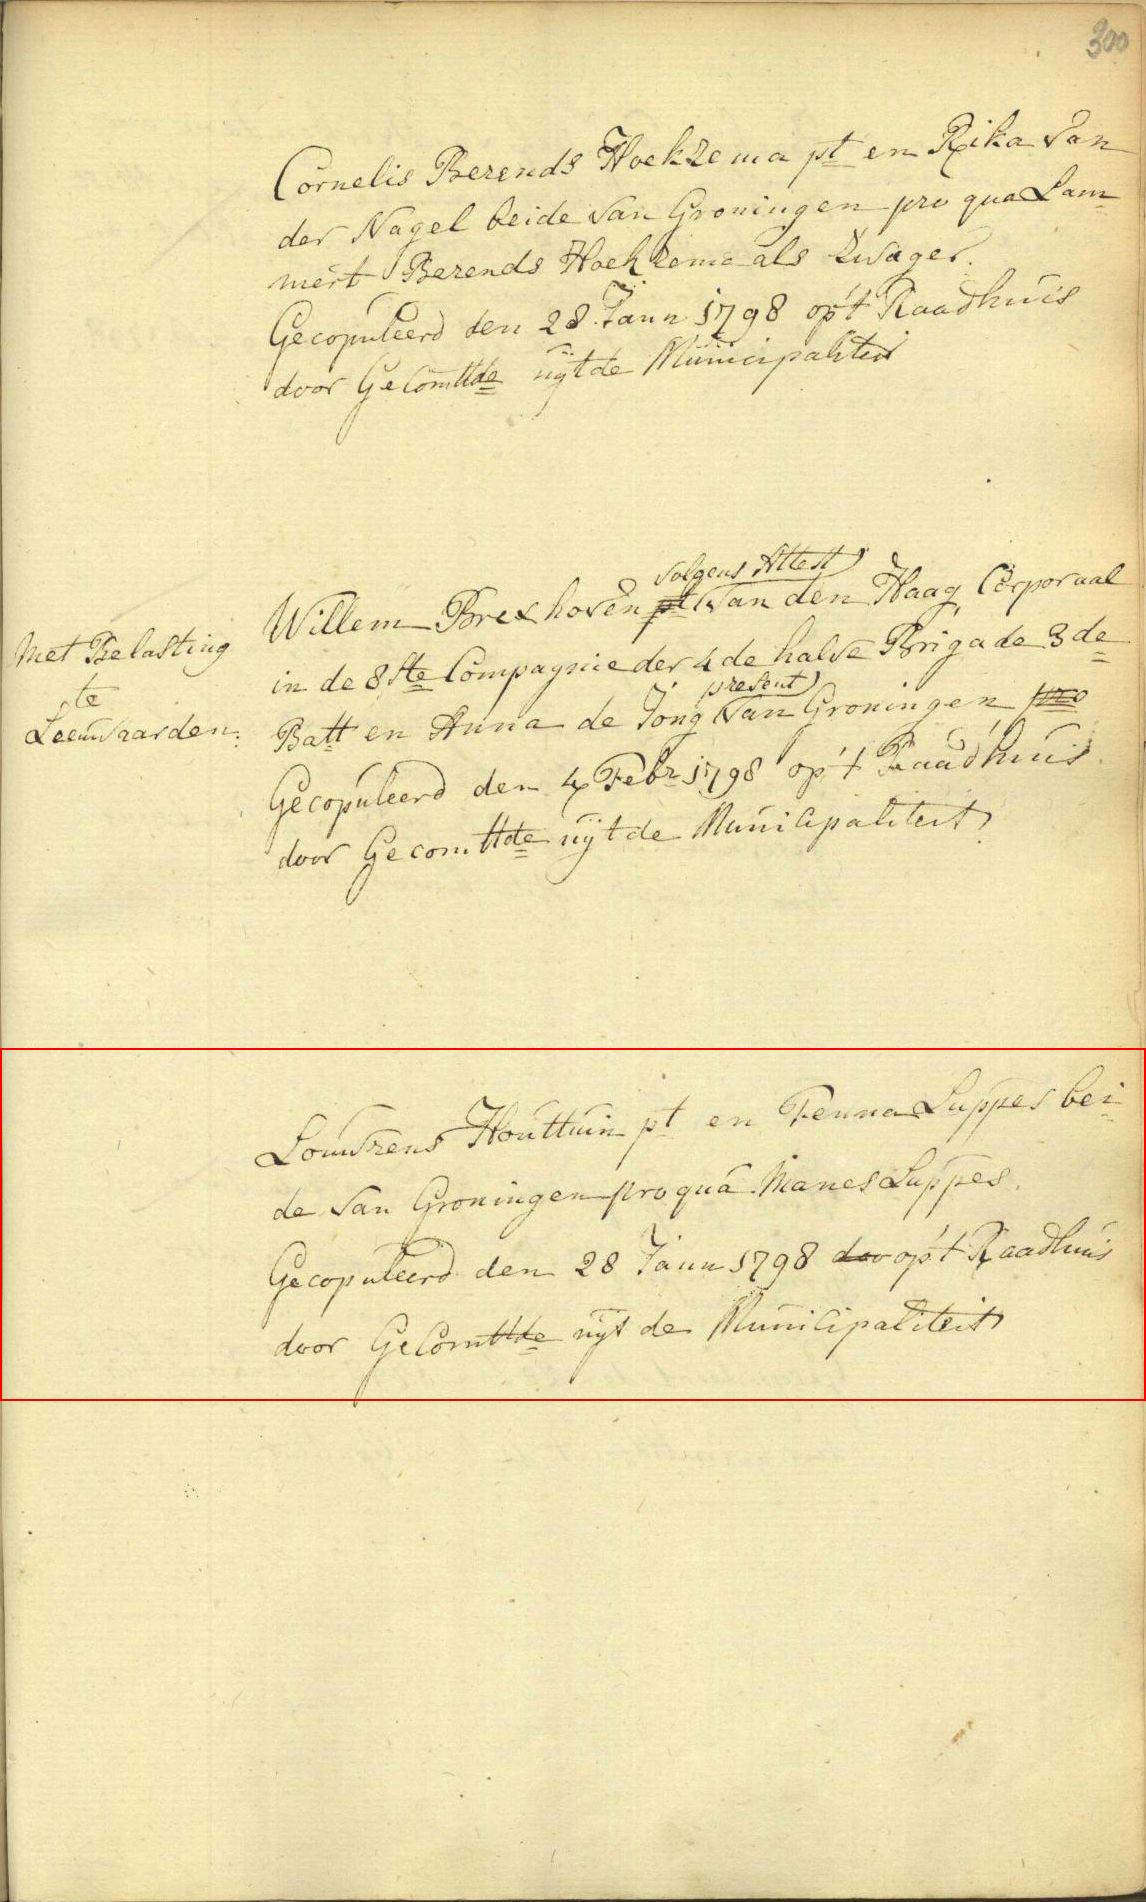 300
Cornelis Berends Hoekzema pt en Rika van
der Nagel beide van Groningen pro qua Lam-
mert Berends Hoekzema als Zwager.
Gecopuleerd den 28 Jann 1798 op't Raadhuis
door Gecomttde uijt de Municipaliteit
volgens Attest
Willem Brexhoven pt van den Haag Corporaal
Met Belasting
te
Leeuwaarden:
in de 8ste Compagnie der 4de halve Brigade 3de
present
Batt en Anna de Jong van Groningen pro
Gecopuleerd den 4 Febr 1798 op't Raadhuis
door Gecomttde uijt de Municipaliteit
Louwrens Houttuin pt en Fenna Luppes bei-
de van Groningen pro qua Manes Luppes.
Gecopuleerd den 28 Jann 1798 doo op't Raadhuis
door Gecomttde uijt de Municipaliteit